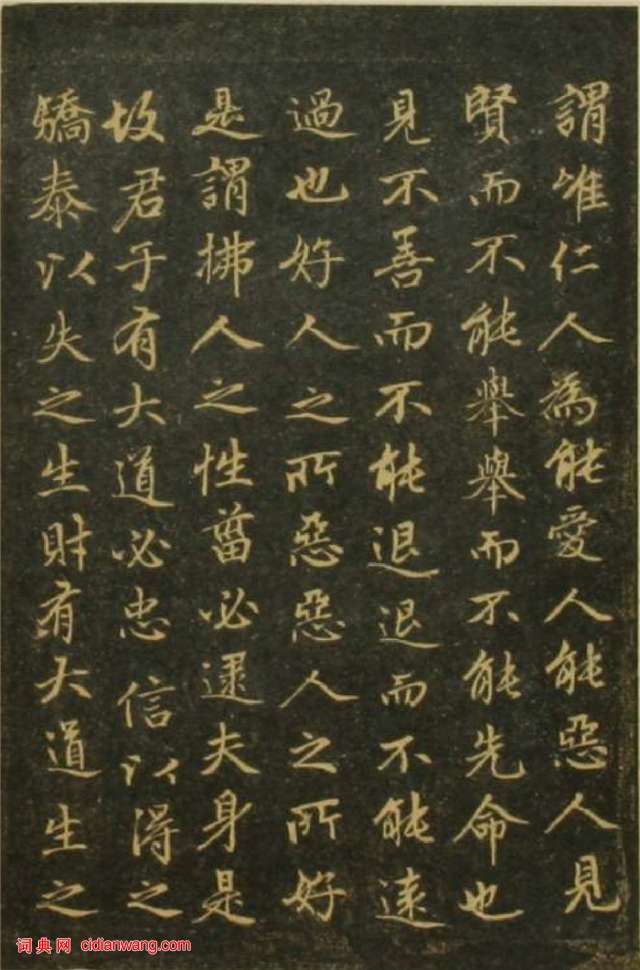 謂唯仁人為能愛人能惡人見
賢而不能舉舉而不能先命也
見不善而不能退退而不能遠
過也好人之所惡惡人之所好
是謂拂人之性菑必逮夫身是
故君子有大道必忠信以得之
驕泰以失之生財有大道生之
词典网 cidianwang.com